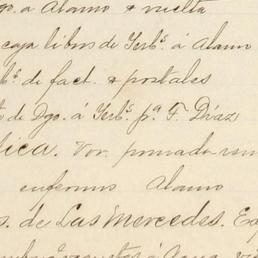 go. á Alamo & vuelta
caja libros de Yerbs. á Alamo
de fact. & postales
de Dgo. á Yerbs. pa. F. Díaz
lica. Vor. pomada
enfermos Alamo
s. de Las Mercedes. Es
á Agua